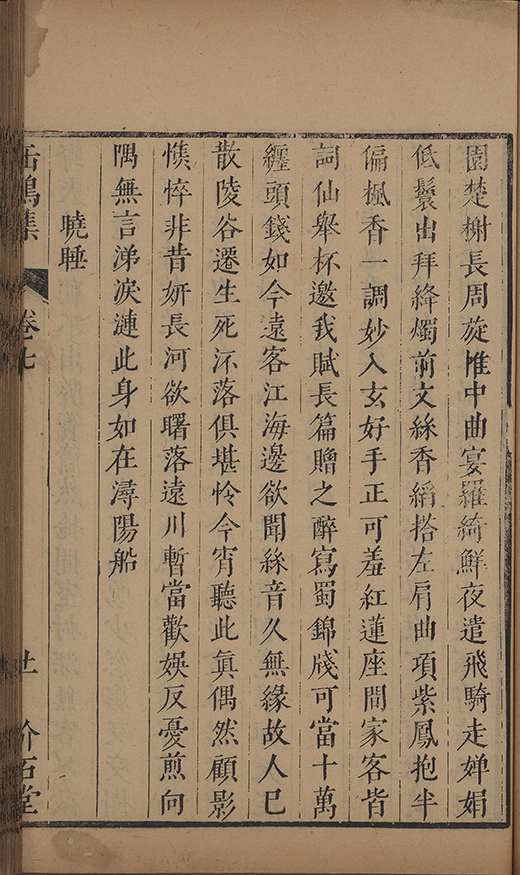 園楚榭長周旋帷中曲宴羅綺鮮夜遣飛騎走嬋娟
低鬟出拜絳燭前文絲香縚搭左肩曲項紫鳳抱半
偏楓香一調妙入玄好手正可羞紅蓮座間家客皆
詞仙舉杯邀我賦長篇贈之醉寫蜀錦牋可當十萬
纏頭錢如今遠客江海邊欲聞絲音久無緣故人已
散陵谷遷生死流落俱堪怜今宵聽此眞偶然顧影
憔悴非昔妍長河欲曙落遠川暫當歡娛反憂煎向
隅無言涕淚漣此身如在潯陽船
曉睡
缶鳴集
卷七
十一
介石堂